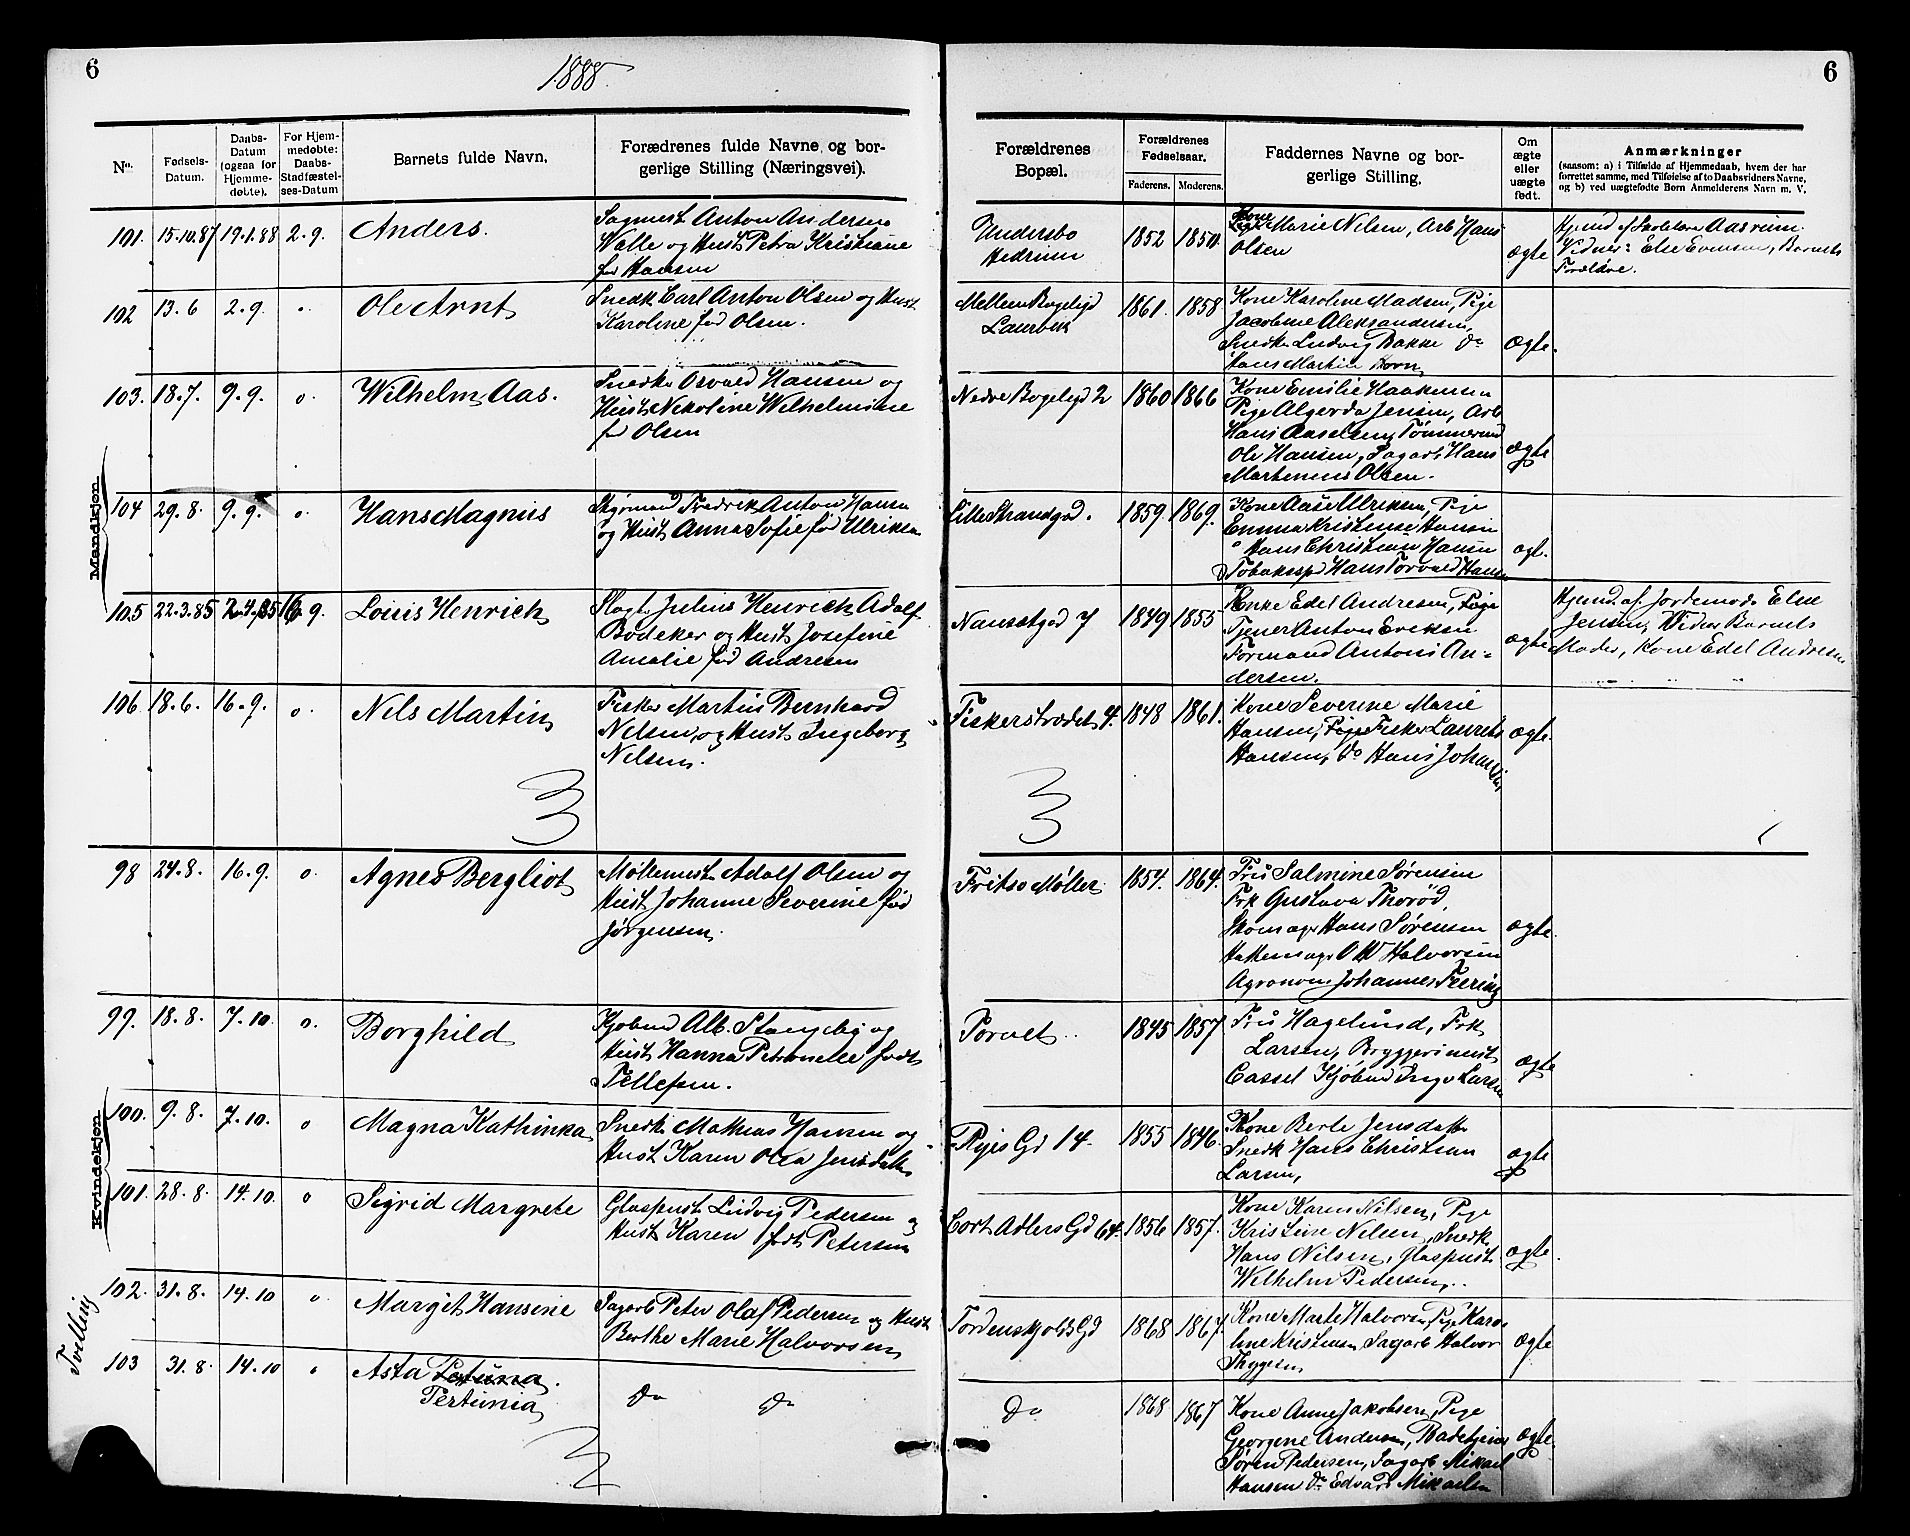 6
1888.
6
No.
Fødsels-Datum.
Daabs-Datum (ogsaa for Hjemme-døbte).
For Hjem-medøbte: Daabs-Stadfæstel-ses-Datum
Barnets fulde Navn.
Forældrenes fulde Navne og bor-gerlige Stilling (Næringsvei).
Forældrenes Bopæl.
Forældrenes Fødselsaar.
Faderens. Moderens.
Faddernes Navne og bor-gerlige Stilling.
Om ægte eller uægte født.
Anmærkninger
(saasom: a) i Tilfælde af Hjemmedaab, hvem der har
forrettet samme, med Tilføielse af to Daabsvidners Navne,
og b) ved uægtefødte Børn Anmelderens Navn m. V.
Mandkjøn
101. 15.10.87 19.1.88 2.9. Anders.
Sagmest Anton Andersen
Valle og Hust Petra Kristiane
fød Hansen
Undersbo
Hedrum
1852 1850.
Kone Marie Nilsen, Arb Hans
Olsen
ægte
Vidner: Else Evensen, Barnets
Forældre.
102 13.6 2.9. o. Ole Arnt
Snedk Carl Anton Olsen og Hust
Karoline fød Olsen.
Mellem Bøgeligd
Laurvik
1861. 1858
Kone Karoline Madsen, Pige
Jacobine Aleksandersen,
Snedke Ludvig Bakke Do
Hans Martin Horn
Ægte.
103. 18.7. 9.9. o. Wilhelm Aas.
Snedke Osvald Hansen og
Hust Nikoline Wilhelmine
fød Olsen
Nedre Bøgeligd 2
1860 1866
Kone Emilie Haakensen
Pige Algerda Jensen, Arb
Hans Axelsen, Tømmermd
Ole Hansen, Sagarb Hans
Martinius Olsen.
ægte
104 29.8. 9.9. o. Hans Magnus
Styrmand Fredrik Anton Hansen
og Hust Anna Sofie fød Ulriksen
Lille Strandgad.
1859. 1869.
Kone Aase Ulriksen, Pige
Emma Kristense Hansen
Hans Christian Hansen
Tobakssp Hans Torvald Hansen
ægt.
105 22.3.85 2.4.85 16.9. Louis Henrich
Slagt. Julius Henrich Adolf
Bödeker og Hust Josefine
Amalie fød Andresen
Nansetgd 7
1849 1855
Enke Edel Andresen, Pige
Tjener Anton Eriksen
Formand Antoni An-
dersen.
ægte
Hjemd. af Jordemod. Else
Jensen, Vidner Barnets
Moder, Kone Edel Andresen
106 18.6. 16.9. o. Nils Martin
Fisker Martin Bernhard
Nelsen og Hust Ingeborg
Nelsen.
Fiskerstrædet 4.
1848 1861.
Kone Severine Marie
Hansen, Pige Fisker Laurits
Hansen, Do Hans Johansen
ægte.
3
3
Kvindekjøn
98 24.8. 16.9. o. Agnes Bergliot
Møllemest Adolf Olsen og
Hust Johanne Severine fød
Jørgensen.
Fritsø Møller
1854. 1864.
Fru Salmine Sørensen
Frk Gustava Thorød,
Skomager Hans Sørensen
Hattemager O W Halvorsen
Agronom Johannes Feering
ægte.
99. 18.8. 7.10. o. Borghild
Kjøbmd Alb. Stangeby og
Hust Hanna Petronelle født
Tellefsen.
Torvet.
1845 1857
Fru Hagelund, Frk
Larsen, Bryggerimest
Cassel Kjøbmd Inge Larsen
ægte
100. 9.8. 7.10. o Magna Kathinka
Snedk Mathias Hansen og
Hust Karen Olea Jensdatter
Ryes Gd 14.
1855 1846.
Kone Berte Jensdatter
Snedk Hans Christian
Larsen,
ægte
101. 28.8. 14.10 o Sigrid Margrete
Glaspust Ludvig Pedersen og
Hust Karen født Petersen
Cort Adlers Gd 64.
1856 1857.
Kone Karen Nilsen, Pige
Kristine Nilsen, Snedk
Hans Nilsen, Glaspust
Wilhelm Pedersen.
ægte.
Tvilling
102. 31.8. 14.10 o Margit Hansine
Sagarb Peter Olaf Pedersen og Hust
Berthe Marie Halvorsen
Tordenskjolds Gd
1868 1867.
Kone Marte Halvorsen, Pige Karo-
line Kristiansen, Sagarb Halvor
Thygesen
ægte
103 31.8. 14.10 o Asta Petunia.
Pertunia
Do Do
Do
1868 1867
Kone Anne Jakobsen, Pige
Georgine Andersen, Badetjener
Søren Pedersen, Sagarb Mikael
Hansen Do Edvard Mikaelsen
ægte.
3